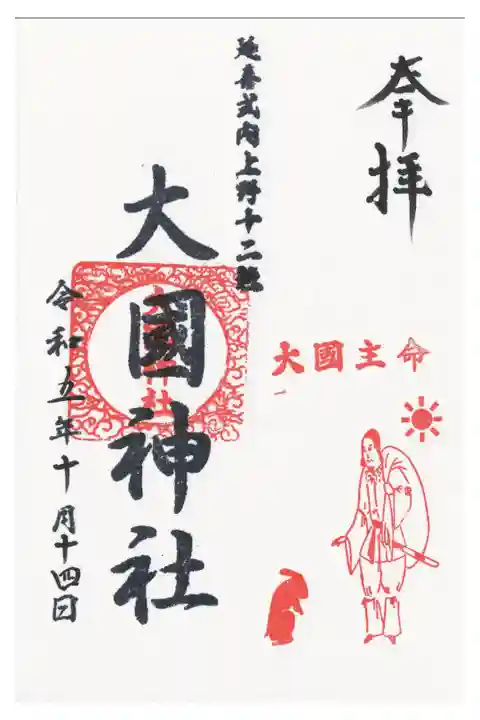 奉拝
延喜式内上野十二社
大國神社
令和五年十月十四日
大國主命